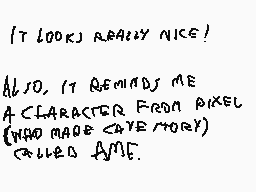 IT LOOKS REALLY NICE!
ALSO, IT REMINDS ME
A CHARACTER FROM PIXEL
(WHO MADE CAVE STORY)
CALLED AME.